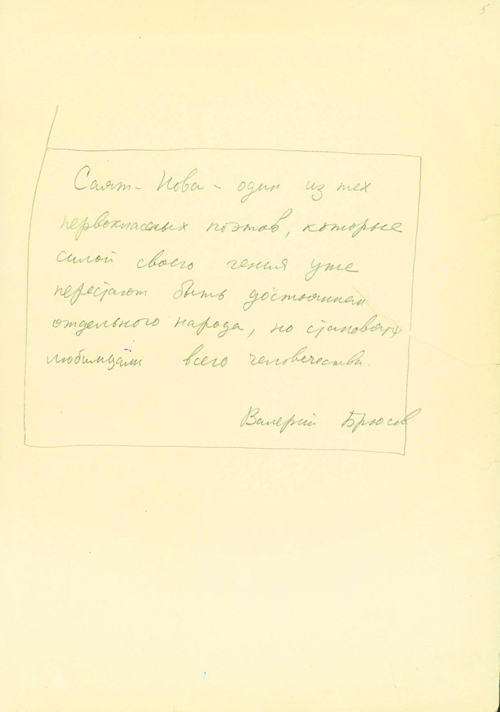 5
Саят-Нова - один из тех
первоклассных поэтов, которые
силой своего гения уже
перестают быть достоянием
отдельного народа, но становятся
любимцами всего человечества.
Валерий Брюсов